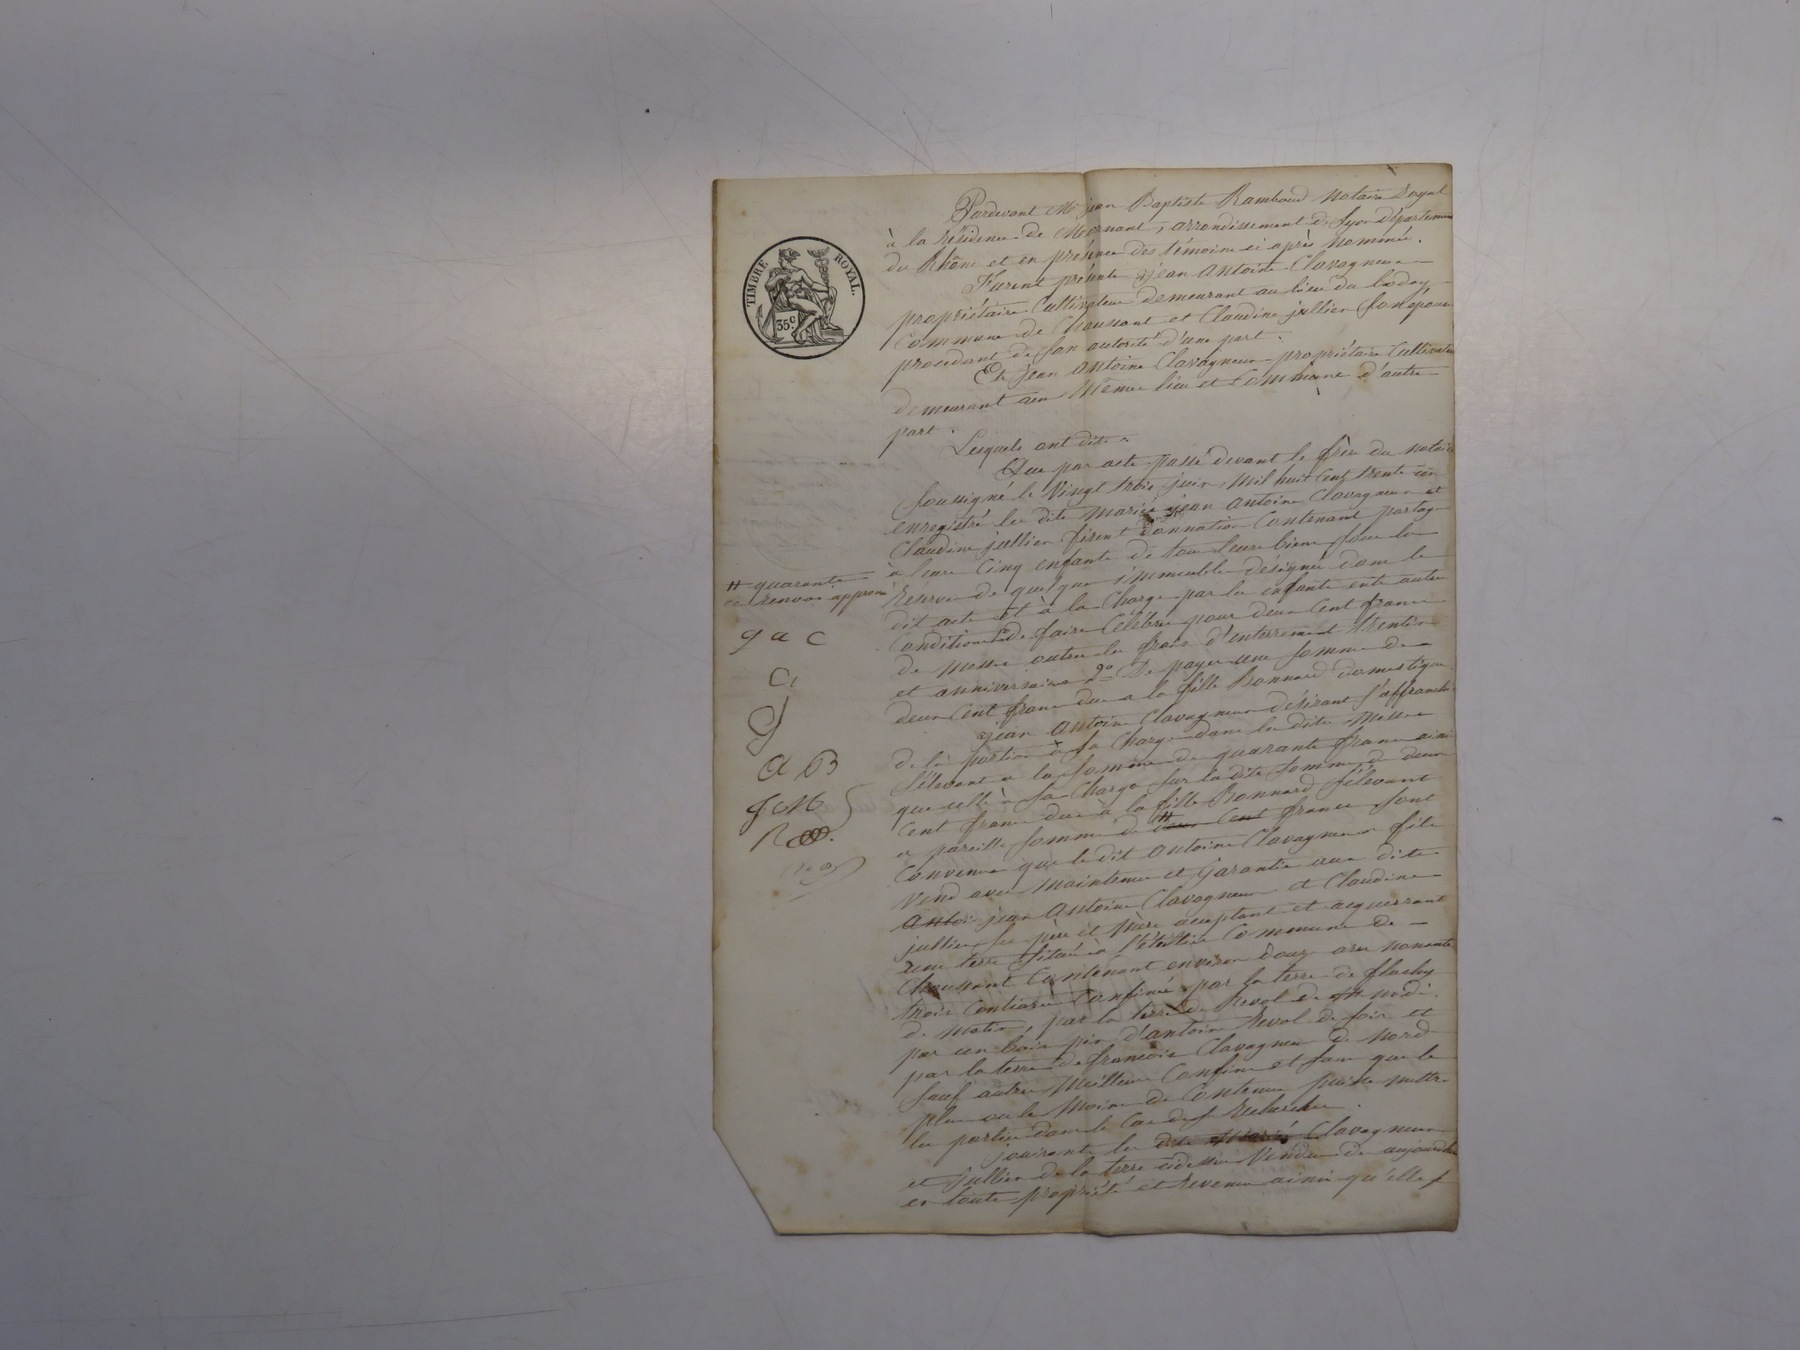 TIMBRE ROYAL.
35c
Pardevant Me jean Baptiste Rambaud Notaire Royal
à la Résidence de Mornant, arrondissement de Lyon département
du Rhône et en présence des témoins ci après Nommés.
Furent présents jean Antoine Clavagneux
propriétaire Cultivateur demeurant au lieu du
Commune de Chaussant et Claudine jullien son épouse
procedant de son autorité d'une part.
Et jean Antoine Clavagneux propriétaire Cultivateur
demeurant aux Mêmes lieu et Commune d'autre
part.
Lesquels ont dit
Que par acte passé devant le frère du notaire
soussigné le Vingt trois juin Mil huit Cent trente
enregistré les dits Mariés jean Antoine Clavagneux et
Claudine jullien firent donnation Contenant partage
à leurs Cinq enfants de tous leurs biens sous la
Réserve de quelques immeubles désignés dans le
dit acte et à la Charge par les enfants entr autres
Conditions de faire Célébrer pour deux Cent francs
de Messes outre les frais d'enterrement
et anniversaire 2° De payer une somme de
deux Cent francs due a la fille Bonnard domestique
jean Antoine Clavagneux désirant s'affranchir
de la portion à sa Charge dans les dites Messes
s'élevant a la somme de quarante francs ainsi
que celle à sa Charge sur la dite somme de deux
Cent francs due à la fille Bonnard s'élevant
a pareille somme de # deux Cent francs sont
Convenus que le dit Antoine Clavagneux fils
Vend avec Maintenue et Garantie aux dits
Antoi jean Antoine Clavagneux et Claudine
jullien ses père et Mère acceptant et acquerrant
une terre située à Commune de
Chaussant Contenant environ douze ares nonante
trois Centiares Confinée par la terre de flachy
de Matin, par la terre de Revol de Midi
par un bois pin d'antoine Revol de soir et
par la terre de françois Clavagneux de Nord
sauf autres Meilleurs Confins et sans que le
plus ou le Moins de Contenue puisse mettre
les parties dans le Cas de se Rechercher.
jouiront les dits Mariés Clavagneux
et Jullien de la terre cidessus Vendue de aujourdhui
en toute propriété et Revenus ainsi qu'elle
# quarante
ce renvoi approuvé
j a C
C j
a B
j c M
R